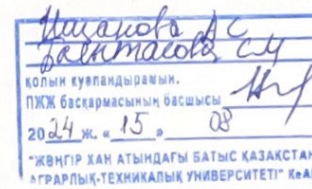 Ищанова А С
Баянтасова С М
қолын куәландырамын.
ПЖЖ басқармасының басшысы
2024 ж. «15» 08
"ЖӘҢГІР ХАН АТЫНДАҒЫ БАТЫС ҚАЗАҚСТАН
АГРАРЛЫҚ-ТЕХНИКАЛЫҚ УНИВЕРСИТЕТІ" КеАҚ